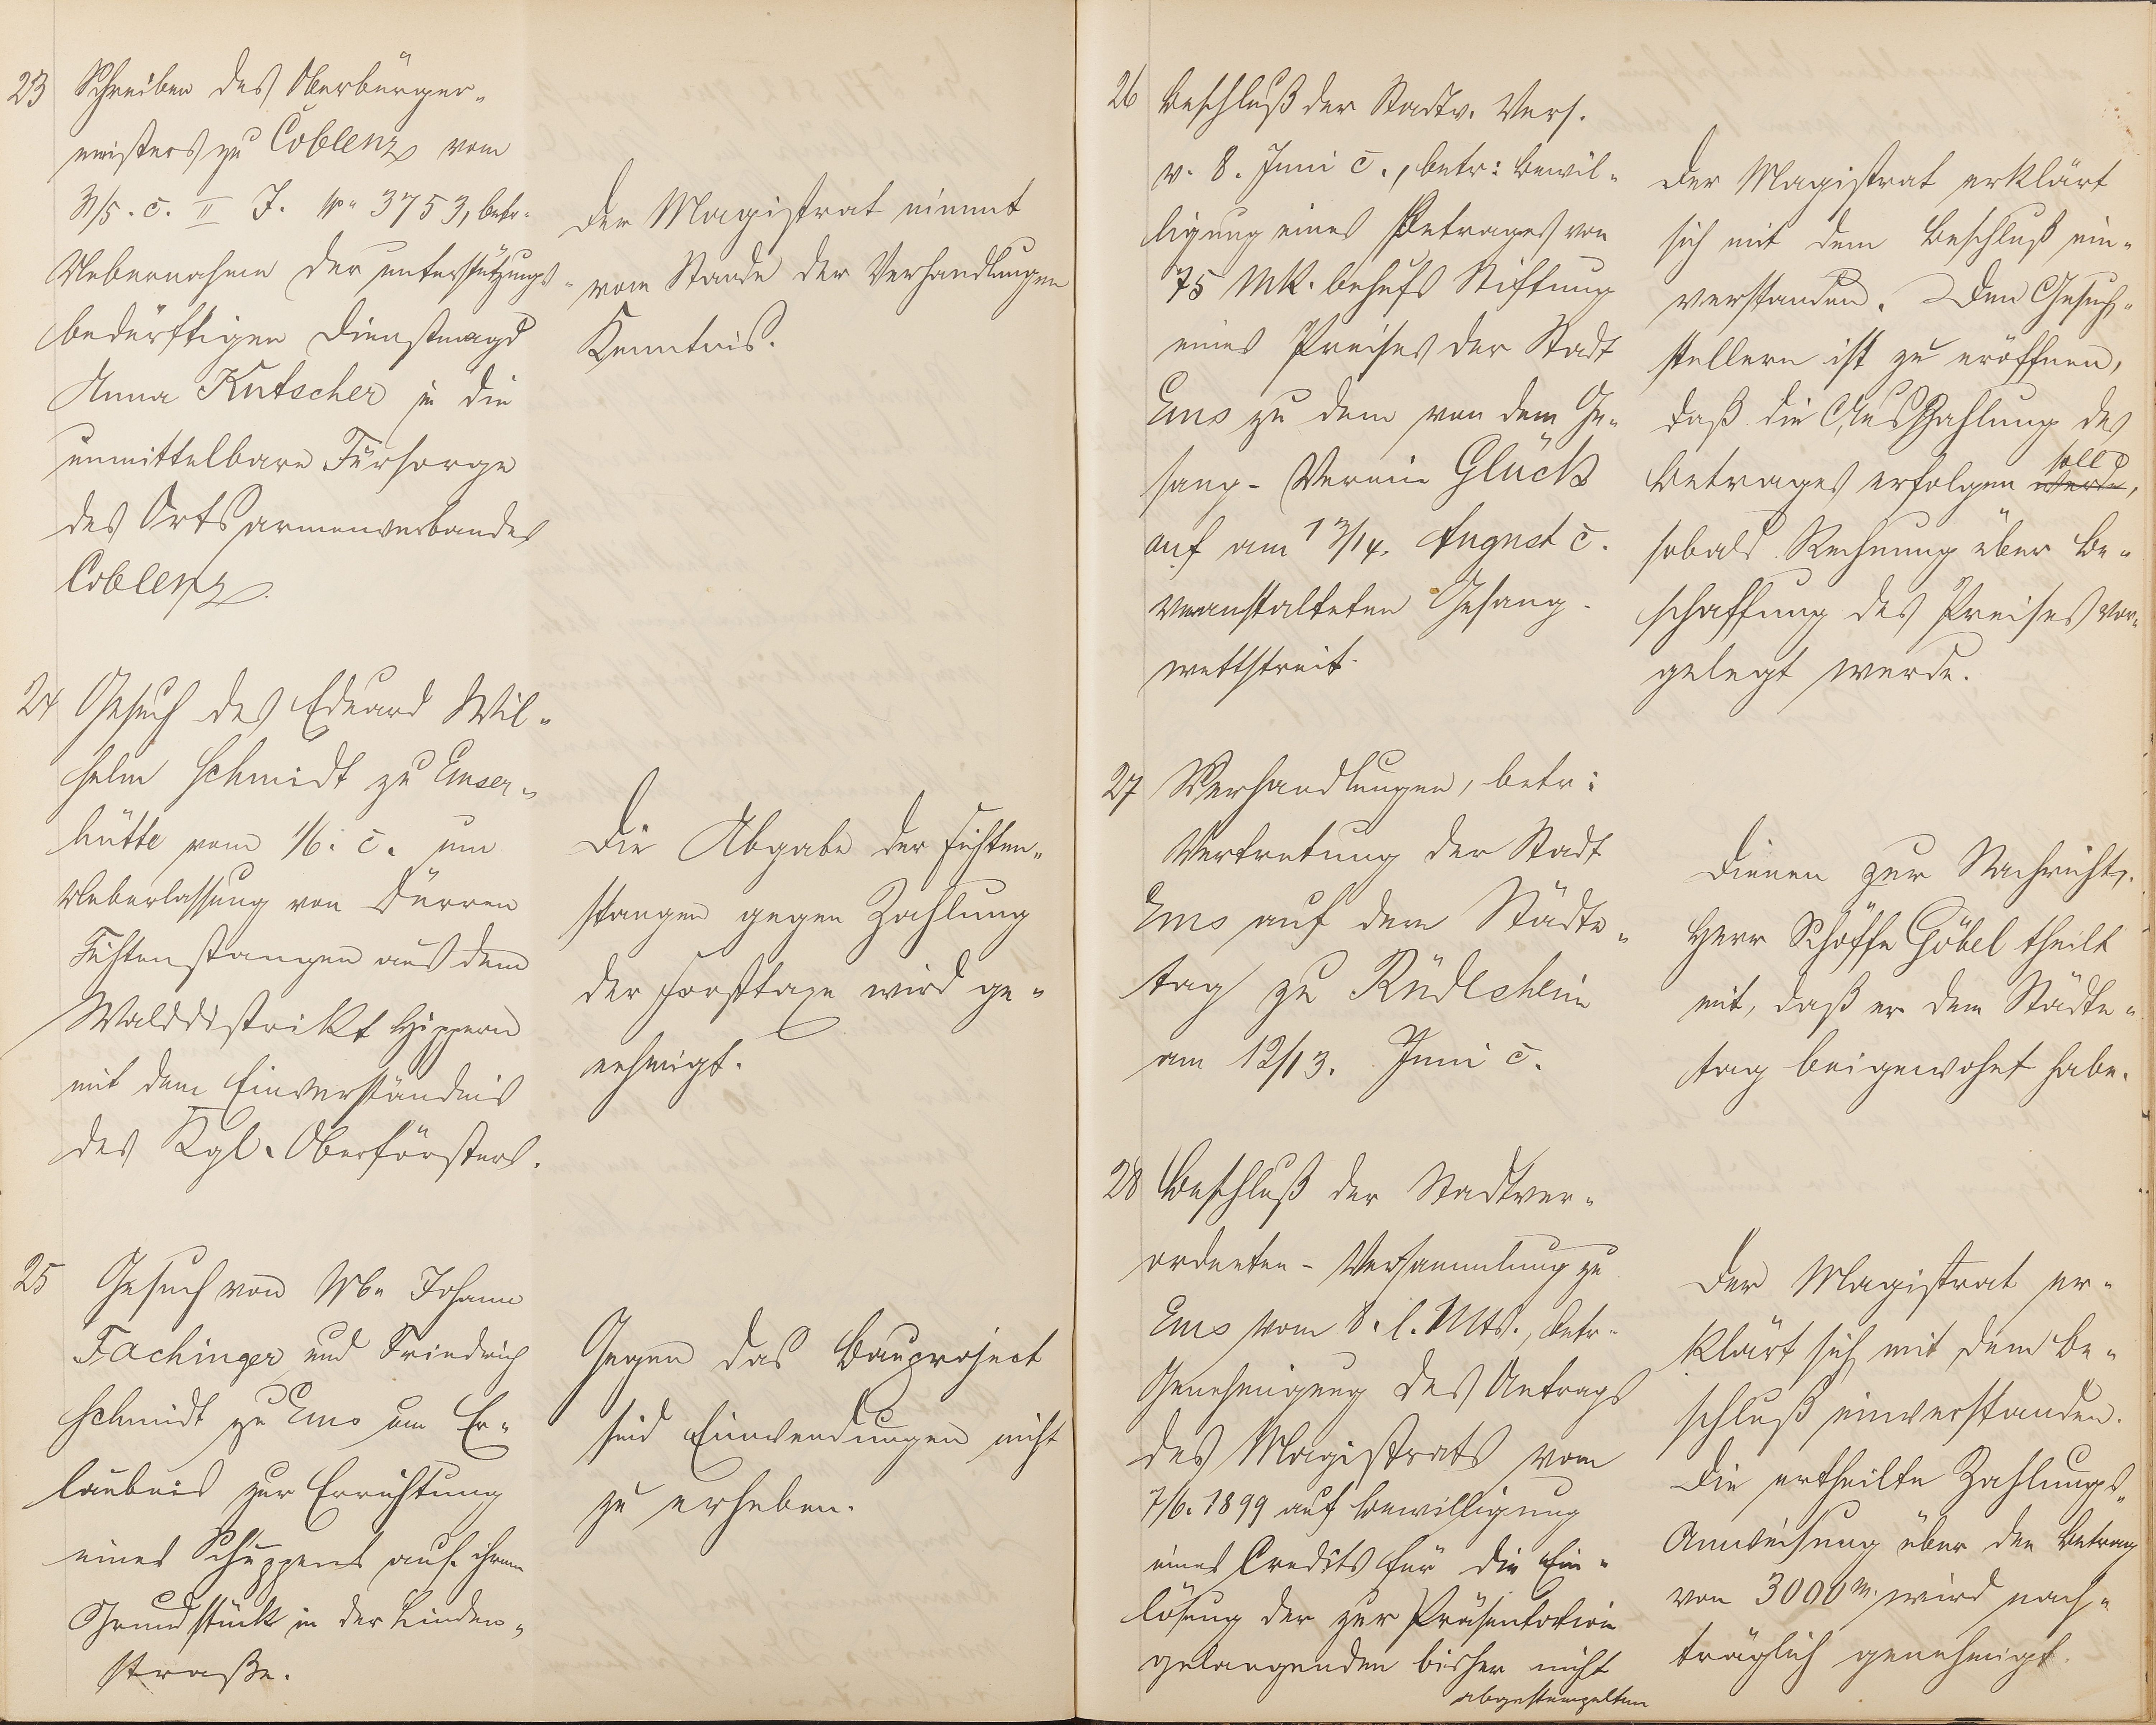 23 Schreiben des Oberbürger-
meisters zu Coblenz vom
31/5. c. II J. No 3753, betr.
Uebernahme der unterstützungs-
bedürftigen Dienstmagd
Anna Kutscher in die
unmittelbare Fürsorge
des Ortsarmenverbandes
Coblenz.
Der Magistrat nimmt
vom Stande der Verhandlungen
Kenntnis.
24 Gesuch des Eduard Wil-
helm Schmidt zu Emser-
hütte vom 1/6. c. um
Ueberlassung von Dürren
Fichtenstangen aus dem
Walddistrikt Hippern
mit dem Einverständnis
des Kgl. Oberförsters.
Die Abgabe der Fichten-
stangen gegen Zahlung
der Forsttaxe wird ge-
nehmigt.
25 Gesuch von Johann
Fachinger und Friedrich
Schmidt zu Ems um Er-
laubnis zur Errichtung
eines Schuppens auf ihrem
Grundstück in der Linden-
straße.
Gegen das Bauproject
sind Einwendungen nicht
zu erheben.
26 Beschluß der Stadtv. Vers.
v. 8. Juni c., betr: Bewil-
ligung eines Betrages von
75 Mk. behufs Stiftung
eines Preises der Stadt
Ems zu dem von dem Ge-
sang-Verein Glück
auf am 13/14. August c.
veranstalteten Gesang-
wettstreit.
Der Magistrat erklärt
sich mit dem Beschluß ein-
verstanden. Den Gesuch-
stellern ist zu eröffnen,
daß die Auszahlung des
soll
Betrages erfolgen werde,
sobald Rechnung über Be-
schaffung des Preises vor-
gelegt werde.
27 Verhandlungen, betr:
Vertretung der Stadt
Ems auf dem Städte-
tag zu Rüdesheim
am 12/13. Juni c.
Dienen zur Nachricht.
Herr Schöffe Göbel theilt
mit, daß er dem Städte-
tag beigewohnt habe.
28 Beschluß der Stadtver-
ordneten-Versammlung zu
Ems vom 8. l. Mts., betr.
Genehmigung des Antrags
des Magistrats vom
7/6. 1899 auf Bewilligung
eines Credits für die Ein-
lösung der zur Präsentation
gelangenden bisher nicht
abgestempelten
Der Magistrat er-
klärt sich mit dem Be-
schluß einverstanden.
Die ertheilte Zahlungs-
Anweisung über den Betrag
von 3000 M. wird nach-
träglich genehmigt.